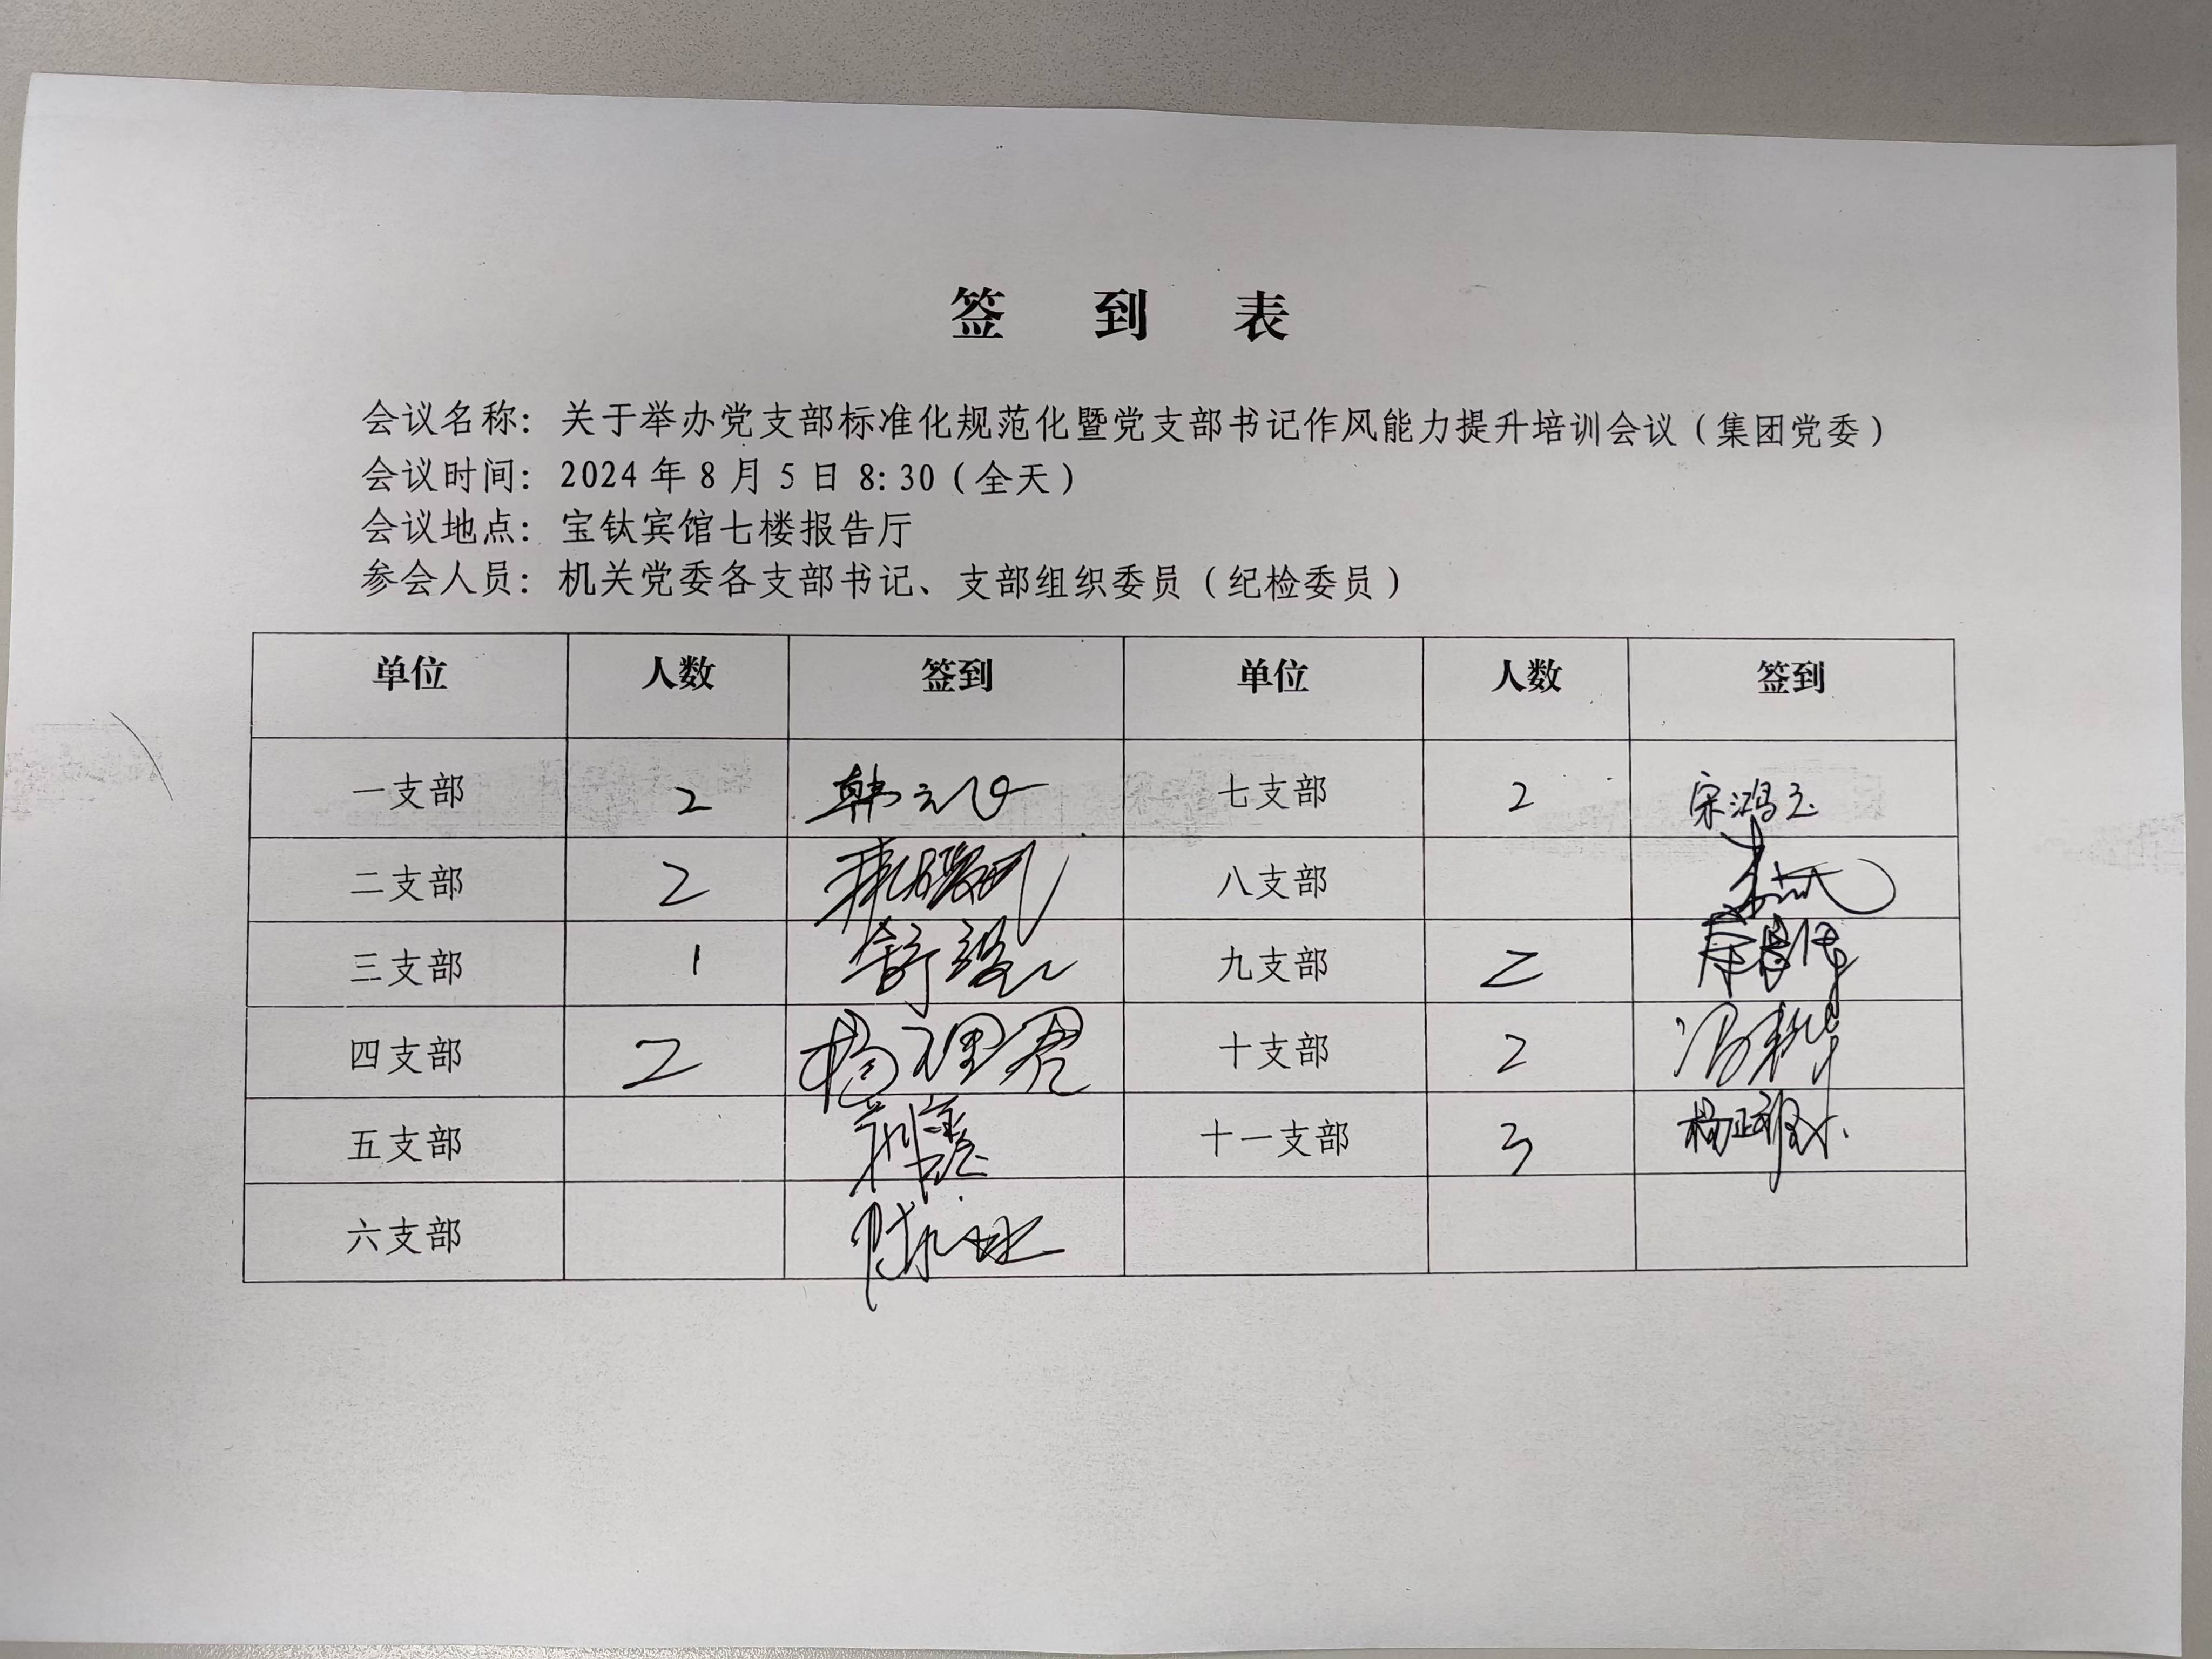 签 到 表
会议名称：关于举办党支部标准化规范化暨党支部书记作风能力提升培训会议（集团党委）
会议时间：2024 年 8 月 5 日 8:30（全天）
会议地点：宝钛宾馆七楼报告厅
参会人员：机关党委各支部书记、支部组织委员（纪检委员）
单位 人数 签到 单位 人数 签到
一支部 2 七支部 2 宋鸿玉
二支部 2 八支部
三支部 1 九支部 2
四支部 2 杨理君 十支部 2
五支部 十一支部 3
六支部